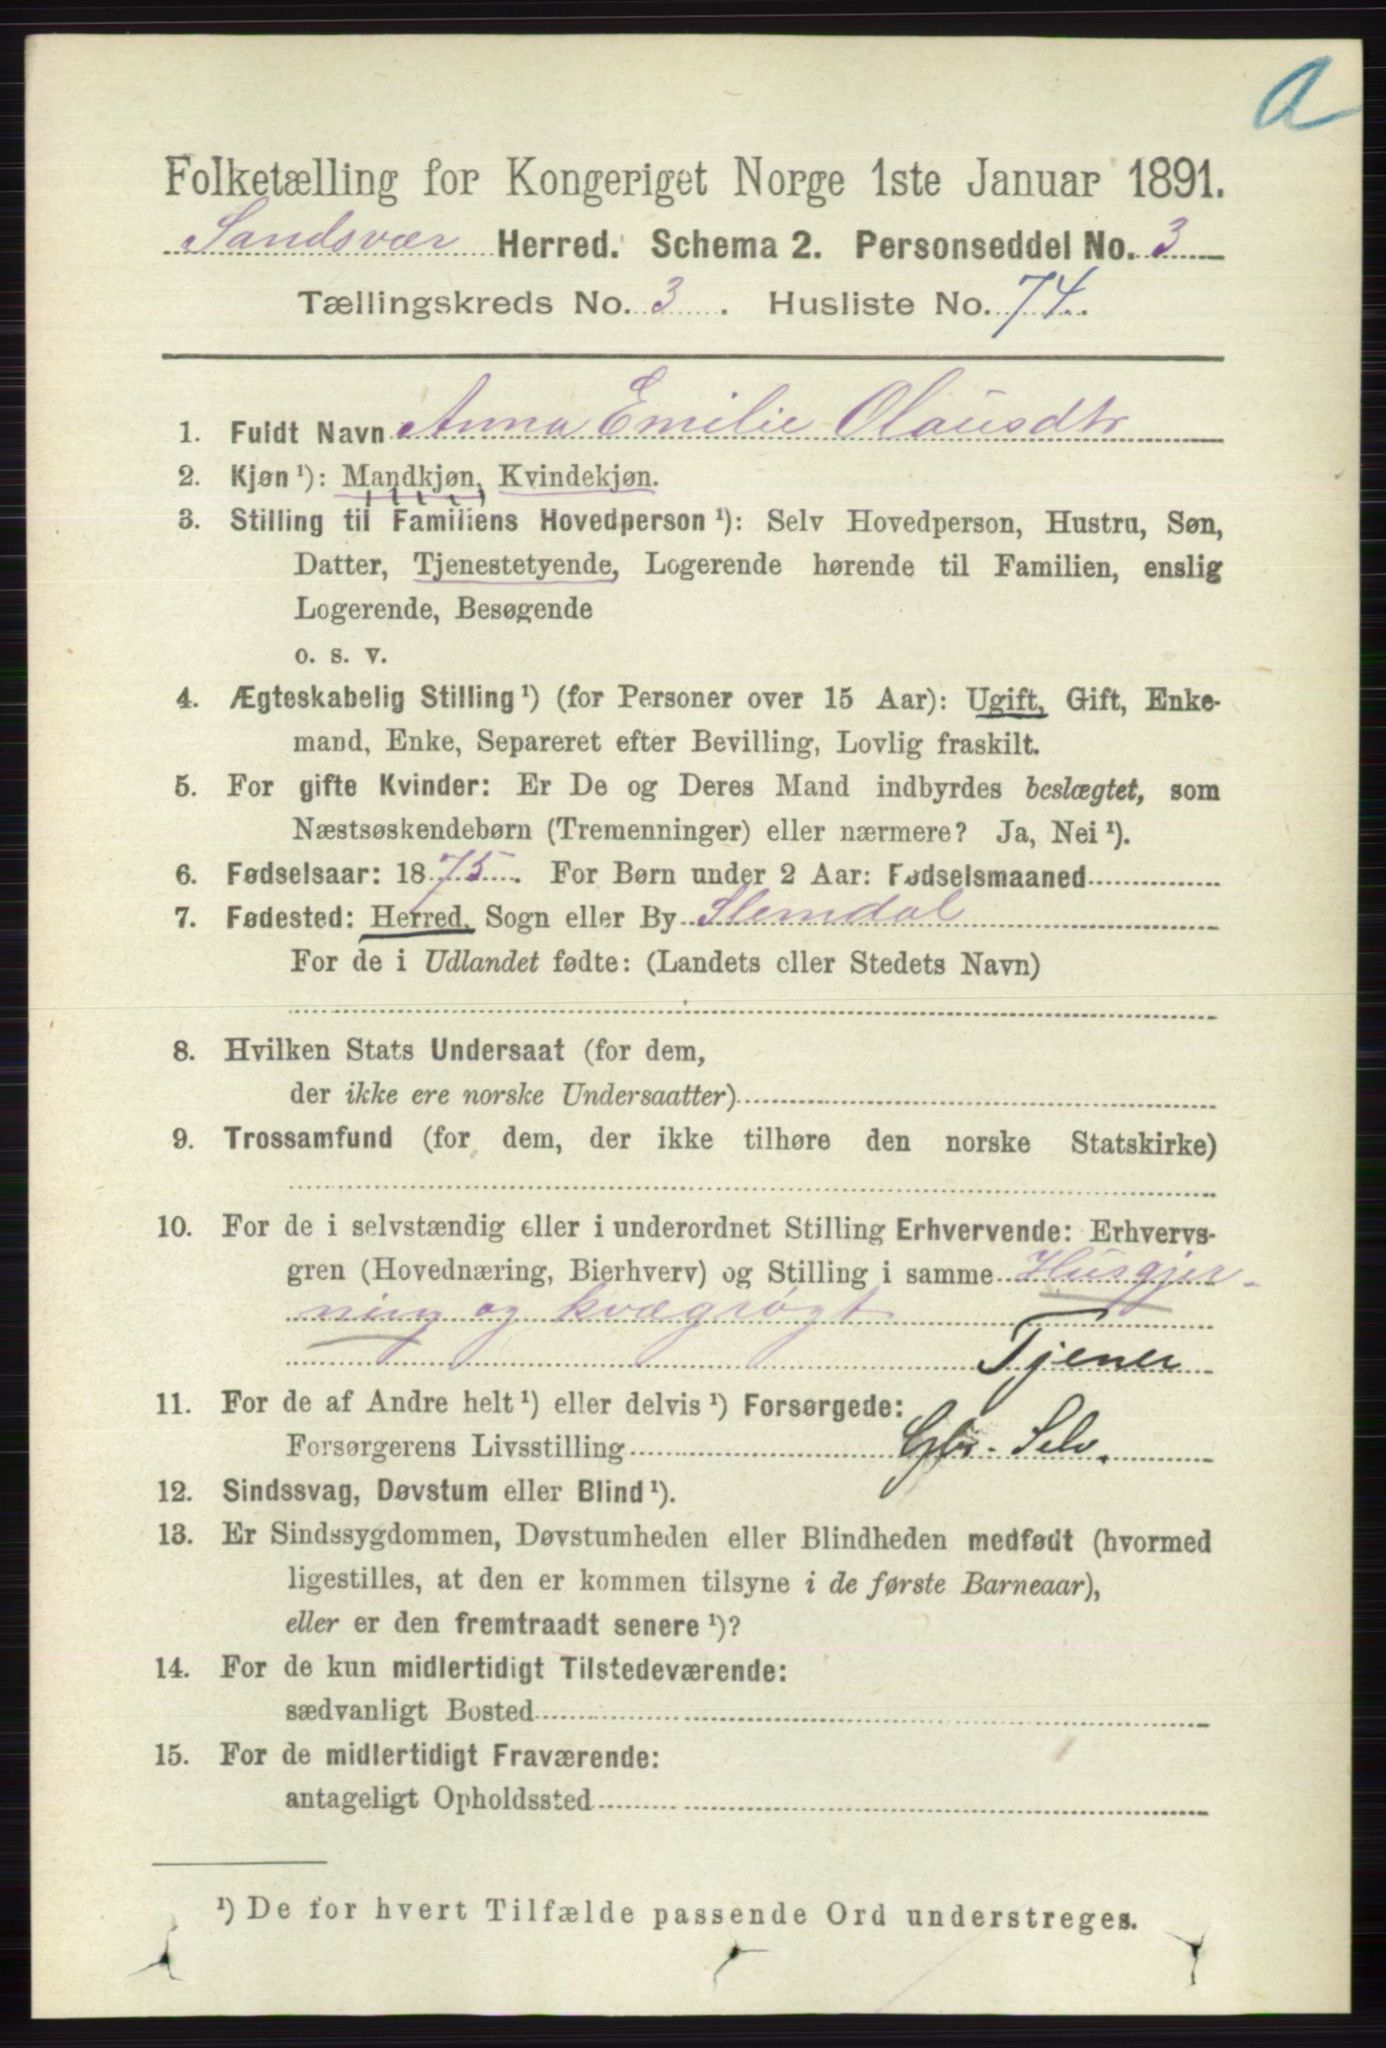 a
Folketælling for Kongeriget Norge 1ste Januar 1891.
Sandsvær Herred. Schema 2. Personseddel No. 3
Tællingskreds No. 3. Husliste No. 74.
1. Fuldt Navn Anna Emilie Olausdtr
2. Kjøn ¹): Mandkjøn, Kvindekjøn.
3. Stilling til Familiens Hovedperson ¹): Selv Hovedperson, Hustru, Søn,
Datter, Tjenestetyende, Logerende hørende til Familien, enslig
Logerende, Besøgende
o. s. v.
4. Ægteskabelig Stilling ¹) (for Personer over 15 Aar): Ugift, Gift, Enke-
mand, Enke, Separeret efter Bevilling, Lovlig fraskilt.
5. For gifte Kvinder: Er De og Deres Mand indbyrdes beslægtet, som
Næstsøskendebørn (Tremenninger) eller nærmere? Ja, Nei ¹).
6. Fødselsaar: 1875. For Børn under 2 Aar: Fødselsmaaned
7. Fødested: Herred, Sogn eller By Slemdal
For de i Udlandet fødte: (Landets eller Stedets Navn)
8. Hvilken Stats Undersaat (for dem,
der ikke ere norske Undersaatter)
9. Trossamfund (for dem, der ikke tilhøre den norske Statskirke)
10. For de i selvstændig eller i underordnet Stilling Erhvervende: Erhvervs-
gren (Hovednæring, Bierhverv) og Stilling i samme Husgjer-
ning og kvægrøgt
Tjener
11. For de af Andre helt ¹) eller delvis ¹) Forsørgede:
Forsørgerens Livsstilling Gbr. Selv.
12. Sindssvag, Døvstum eller Blind ¹).
13. Er Sindssygdommen, Døvstumheden eller Blindheden medfødt (hvormed
ligestilles, at den er kommen tilsyne i de første Barneaar),
eller er den fremtraadt senere ¹)?
14. For de kun midlertidigt Tilstedeværende:
sædvanligt Bosted
15. For de midlertidigt Fraværende:
antageligt Opholdssted
¹) De for hvert Tilfælde passende Ord understreges.